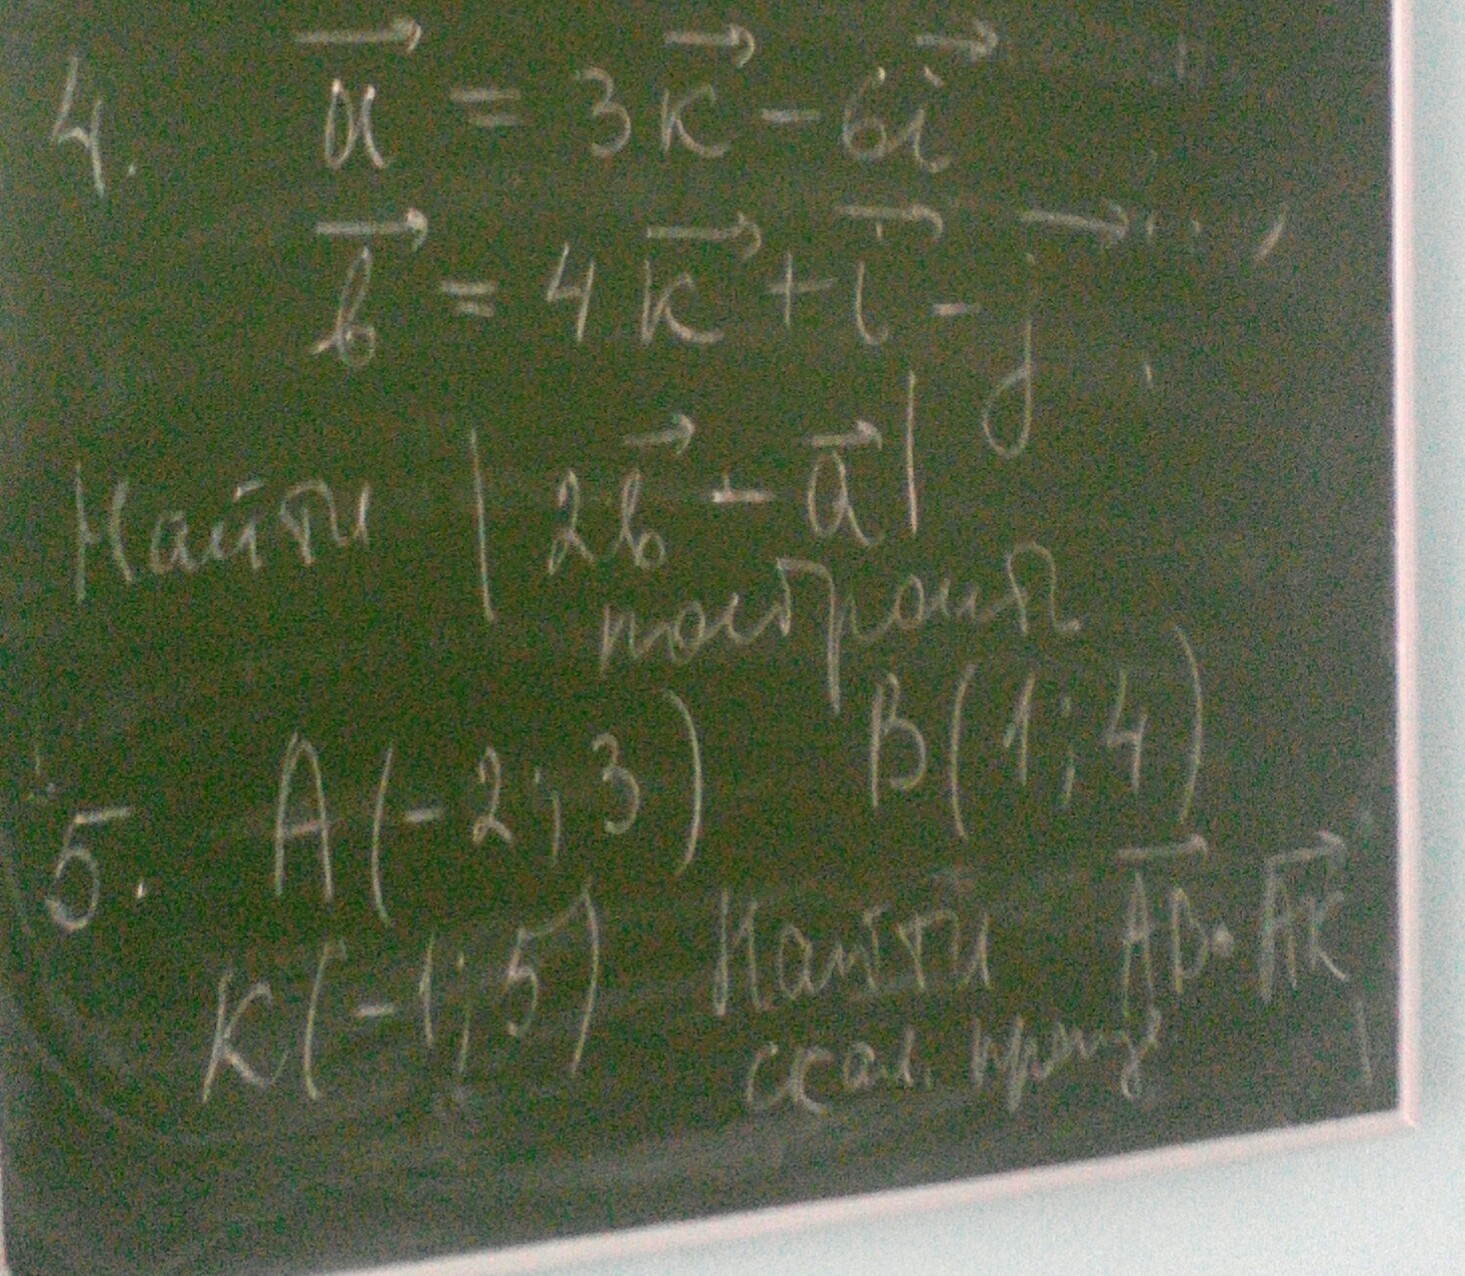 4. a⃗ = 3k⃗ - 6i⃗
b⃗ = 4k⃗ + i⃗ - j⃗
Найти |2b⃗ - a⃗|
построить
5. A(-2; 3) B(1; 4)
K(-1; 5) Найти AB⃗ · AK⃗
скал. произв